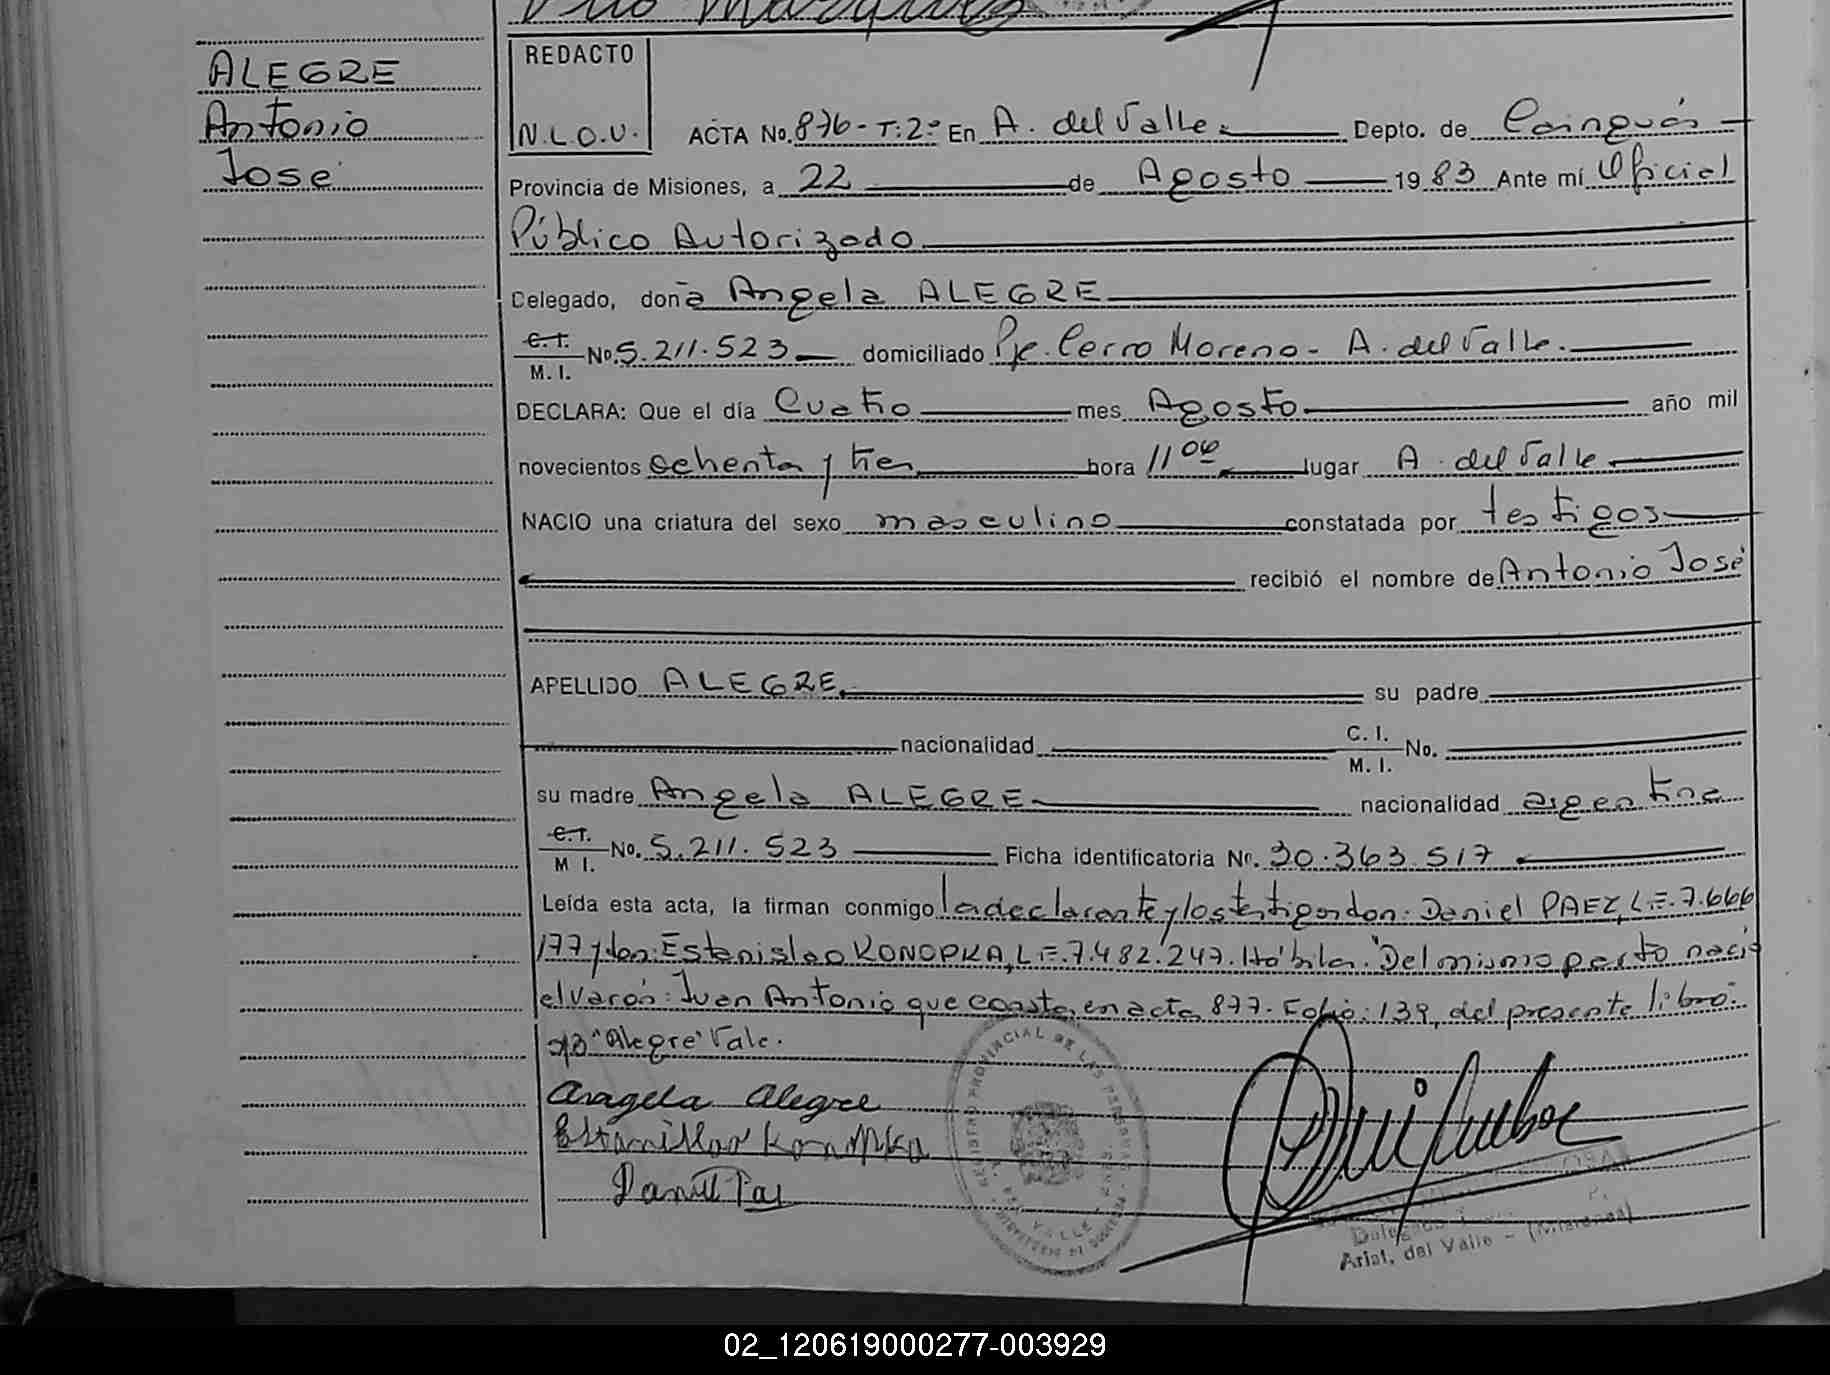 ALEGRE
Antonio
José
REDACTO
N.L.O.U.
ACTA No. 876-T:2º En A. del Valle Depto. de Cainguás
Provincia de Misiones, a 22 de Agosto 1983 Ante mí Oficial
Público Autorizado
Delegado, doña Angela ALEGRE
C.I.
M. I. No. 5.211.523 domiciliado Pje. Cerro Moreno - A. del Valle.
DECLARA: Que el día Cuatro mes Agosto año mil
novecientos ochenta y tres hora 11 00 lugar A. del Valle
NACIO una criatura del sexo masculino constatada por testigos
recibió el nombre de Antonio José
APELLIDO ALEGRE su padre
nacionalidad C. I.
M. I. No.
su madre Angela ALEGRE nacionalidad argentina
C.I.
M I. No. 5.211.523 Ficha identificatoria Nº. 30.363.517
Leída esta acta, la firman conmigo la declarante y los testigos don: Daniel PAEZ, L.E. 7.666
177 y don: Estanislao KONOPKA, L E. 7.482.247. Hábiles. Del mismo parto nació
el varón: Juan Antonio que consta en acta 877. Folio: 139, del presente libro.
"Alegre" Vale.
Angela Alegre
Estanislao Konopka
REGISTRO PROVINCIAL DE LAS PERSONAS
Arist. del Valle - (Misiones)
02_120619000277-003929